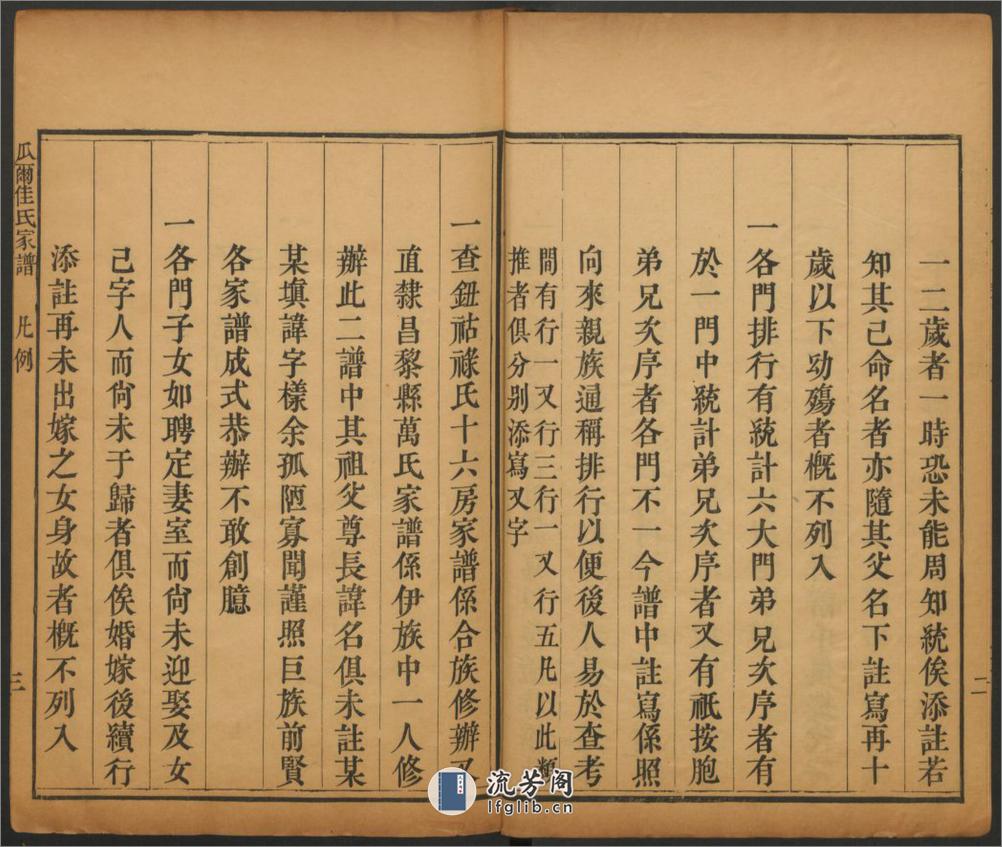 一二歲者一時恐未能周知統俟添註若
知其己命名者亦隨其父名下註寫再十
歲以下幼殤者槪不列入
一各門排行有統計六大門弟兄次序者有
於一門中統計弟兄次序者又有祇按胞
弟兄次序者各門不一今譜中註寫係照
向來親族通稱排行以便後人易於查考
間有行一又行三行一又行五凡以此類
推者俱分别添寫又字
二
一查鈕祜祿氏十六房家譜係合族修辦又
直隸昌黎縣萬氏家譜係伊族中一人修
辦此二譜中其祖父尊長諱名俱未註某
某塡諱字樣余孤陋寡聞謹照巨族前賢
各家譜成式恭辦不敢創臆
一各門子女如聘定妻室而尙未迎娶及女
己字人而尙未于歸者俱俟婚嫁後續行
添註再未出嫁之女身故者槪不列入
瓜爾佳氏家譜 凡例 三
流芳阁
lfglib.cn